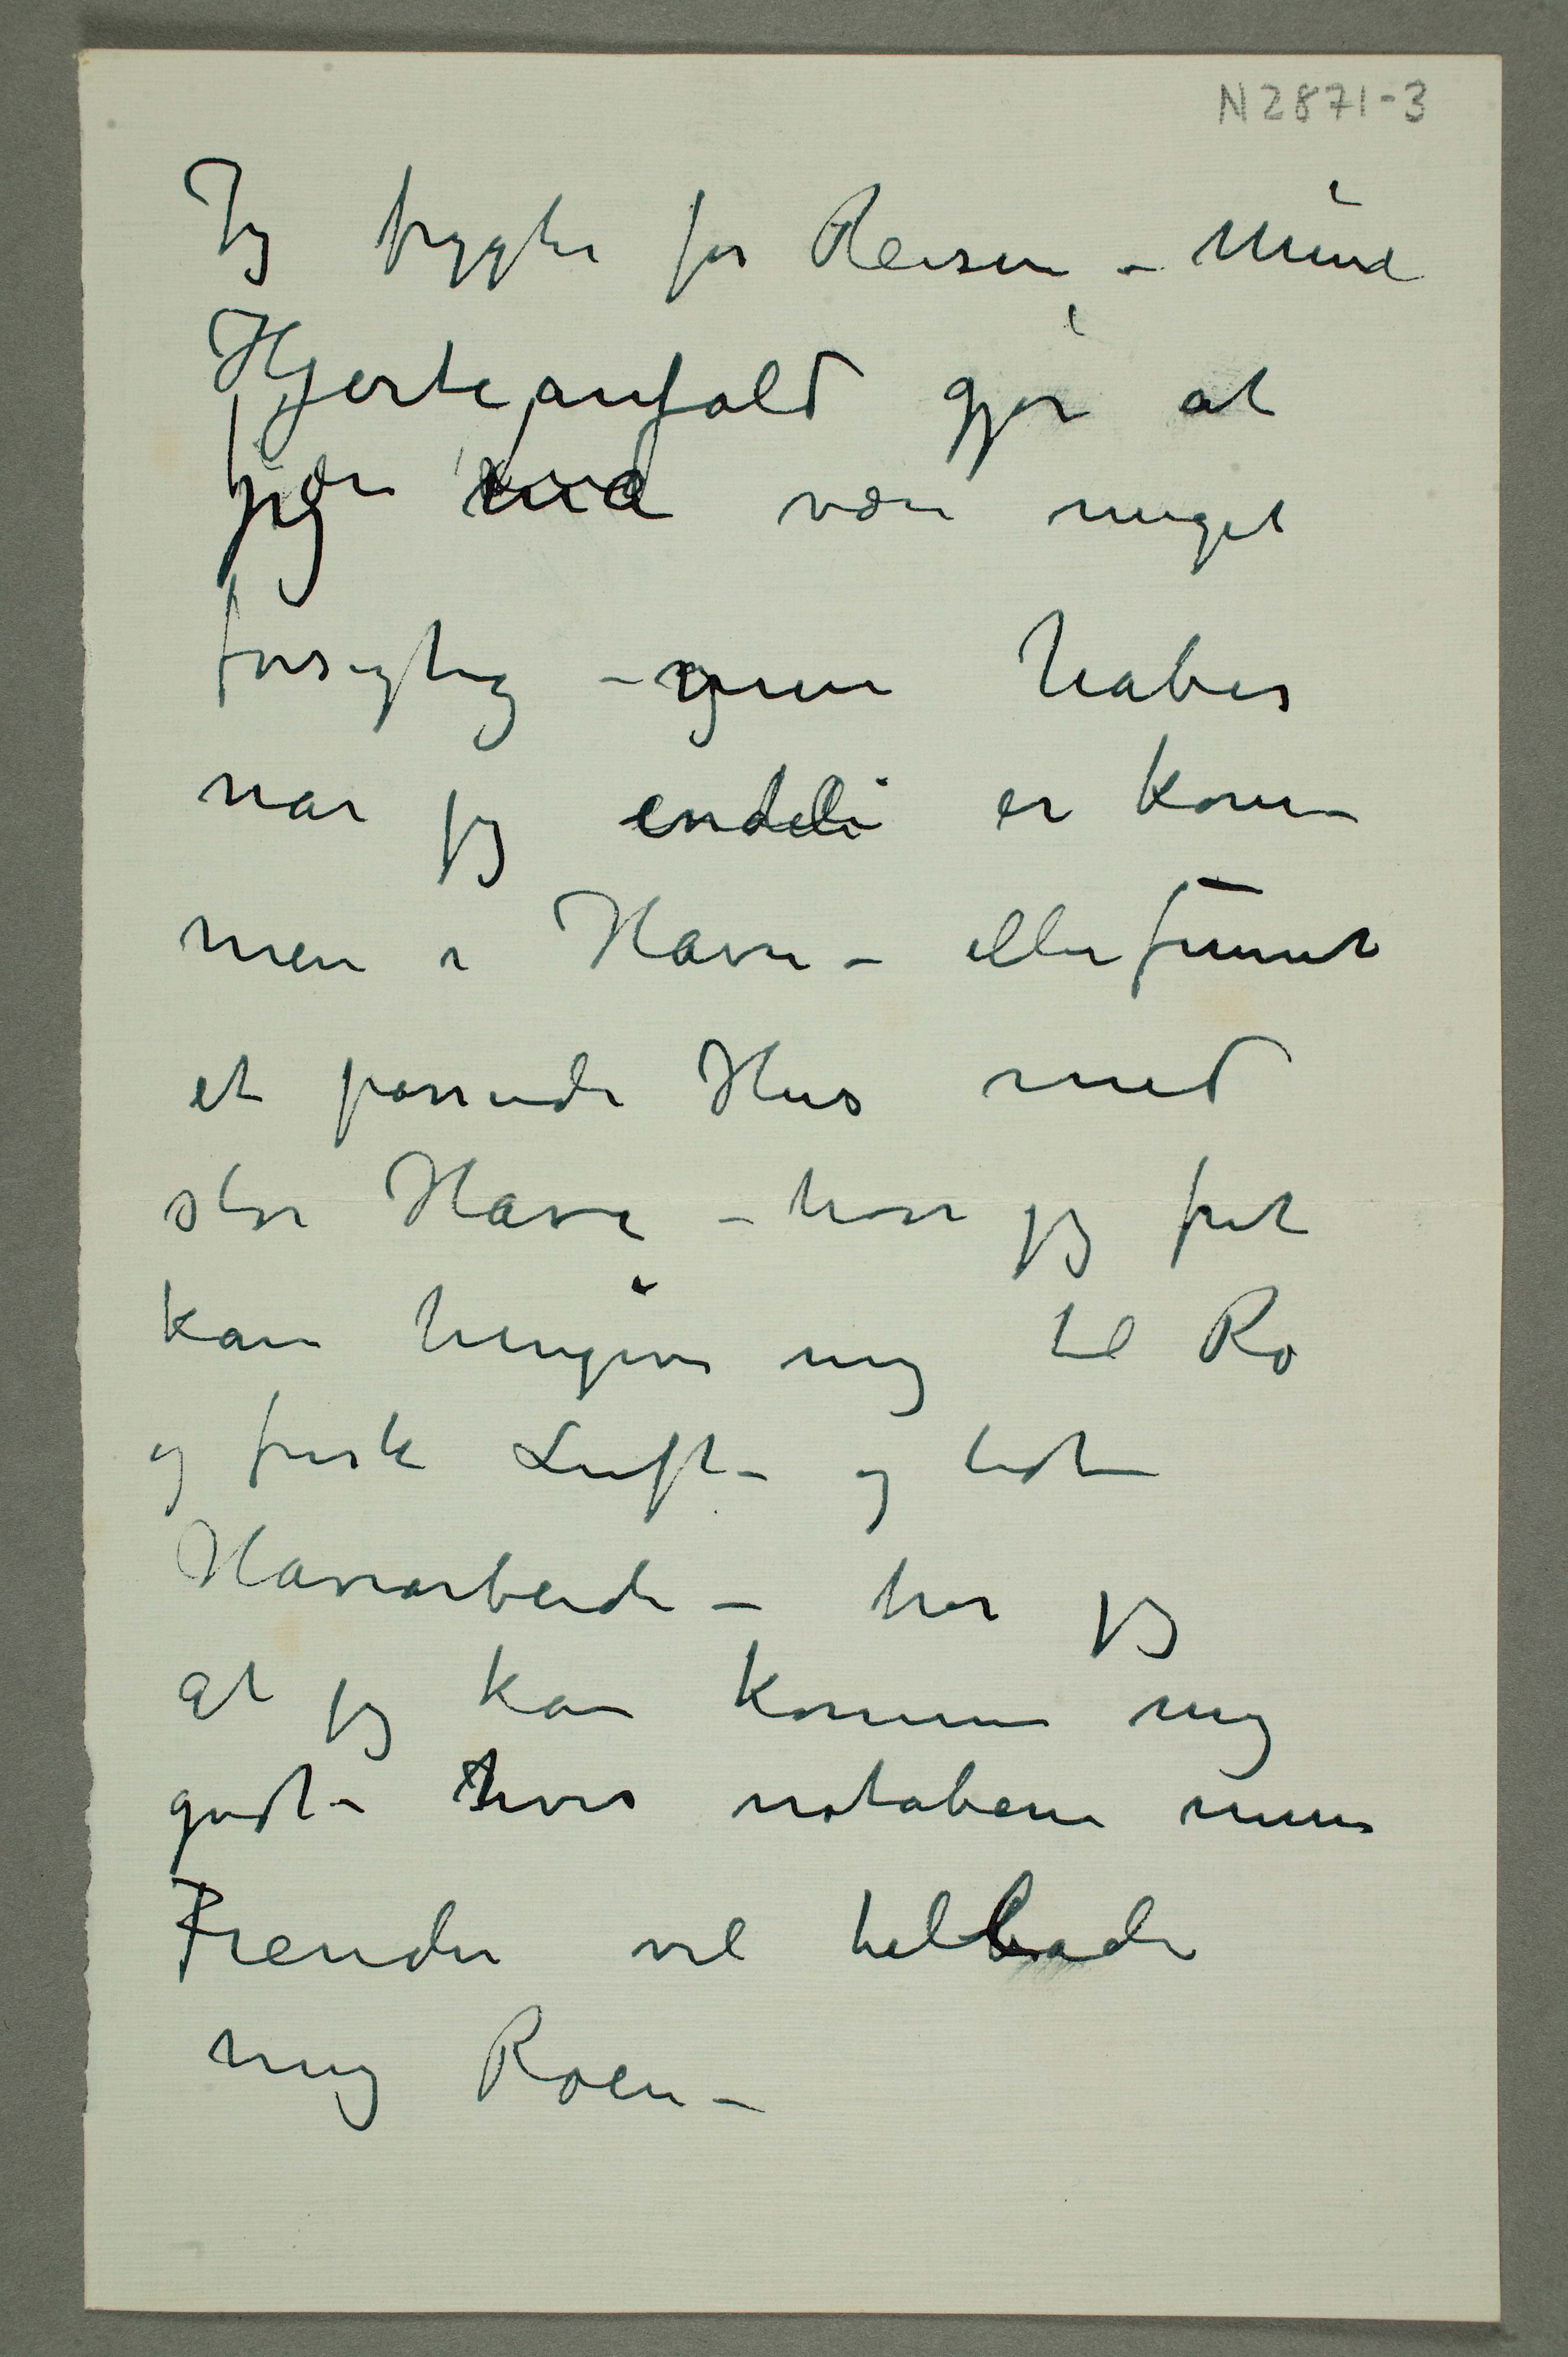 N 2871-3
Jeg frygter for Reisen – Mine
Hjerteanfald gjør at
jeg må være meget
forsigtig – men håber
når jeg endeli er kom-
men i Havn – eller funnet
et passende Hus med
stor Have – hvor jeg frit
kan hengive mig til Ro
og frisk Luft – og lidt
Havearbeide – tror jeg
at jeg kan komme mig
godt – hvis notabene mine
Fiender vil tillade
mig Roen –